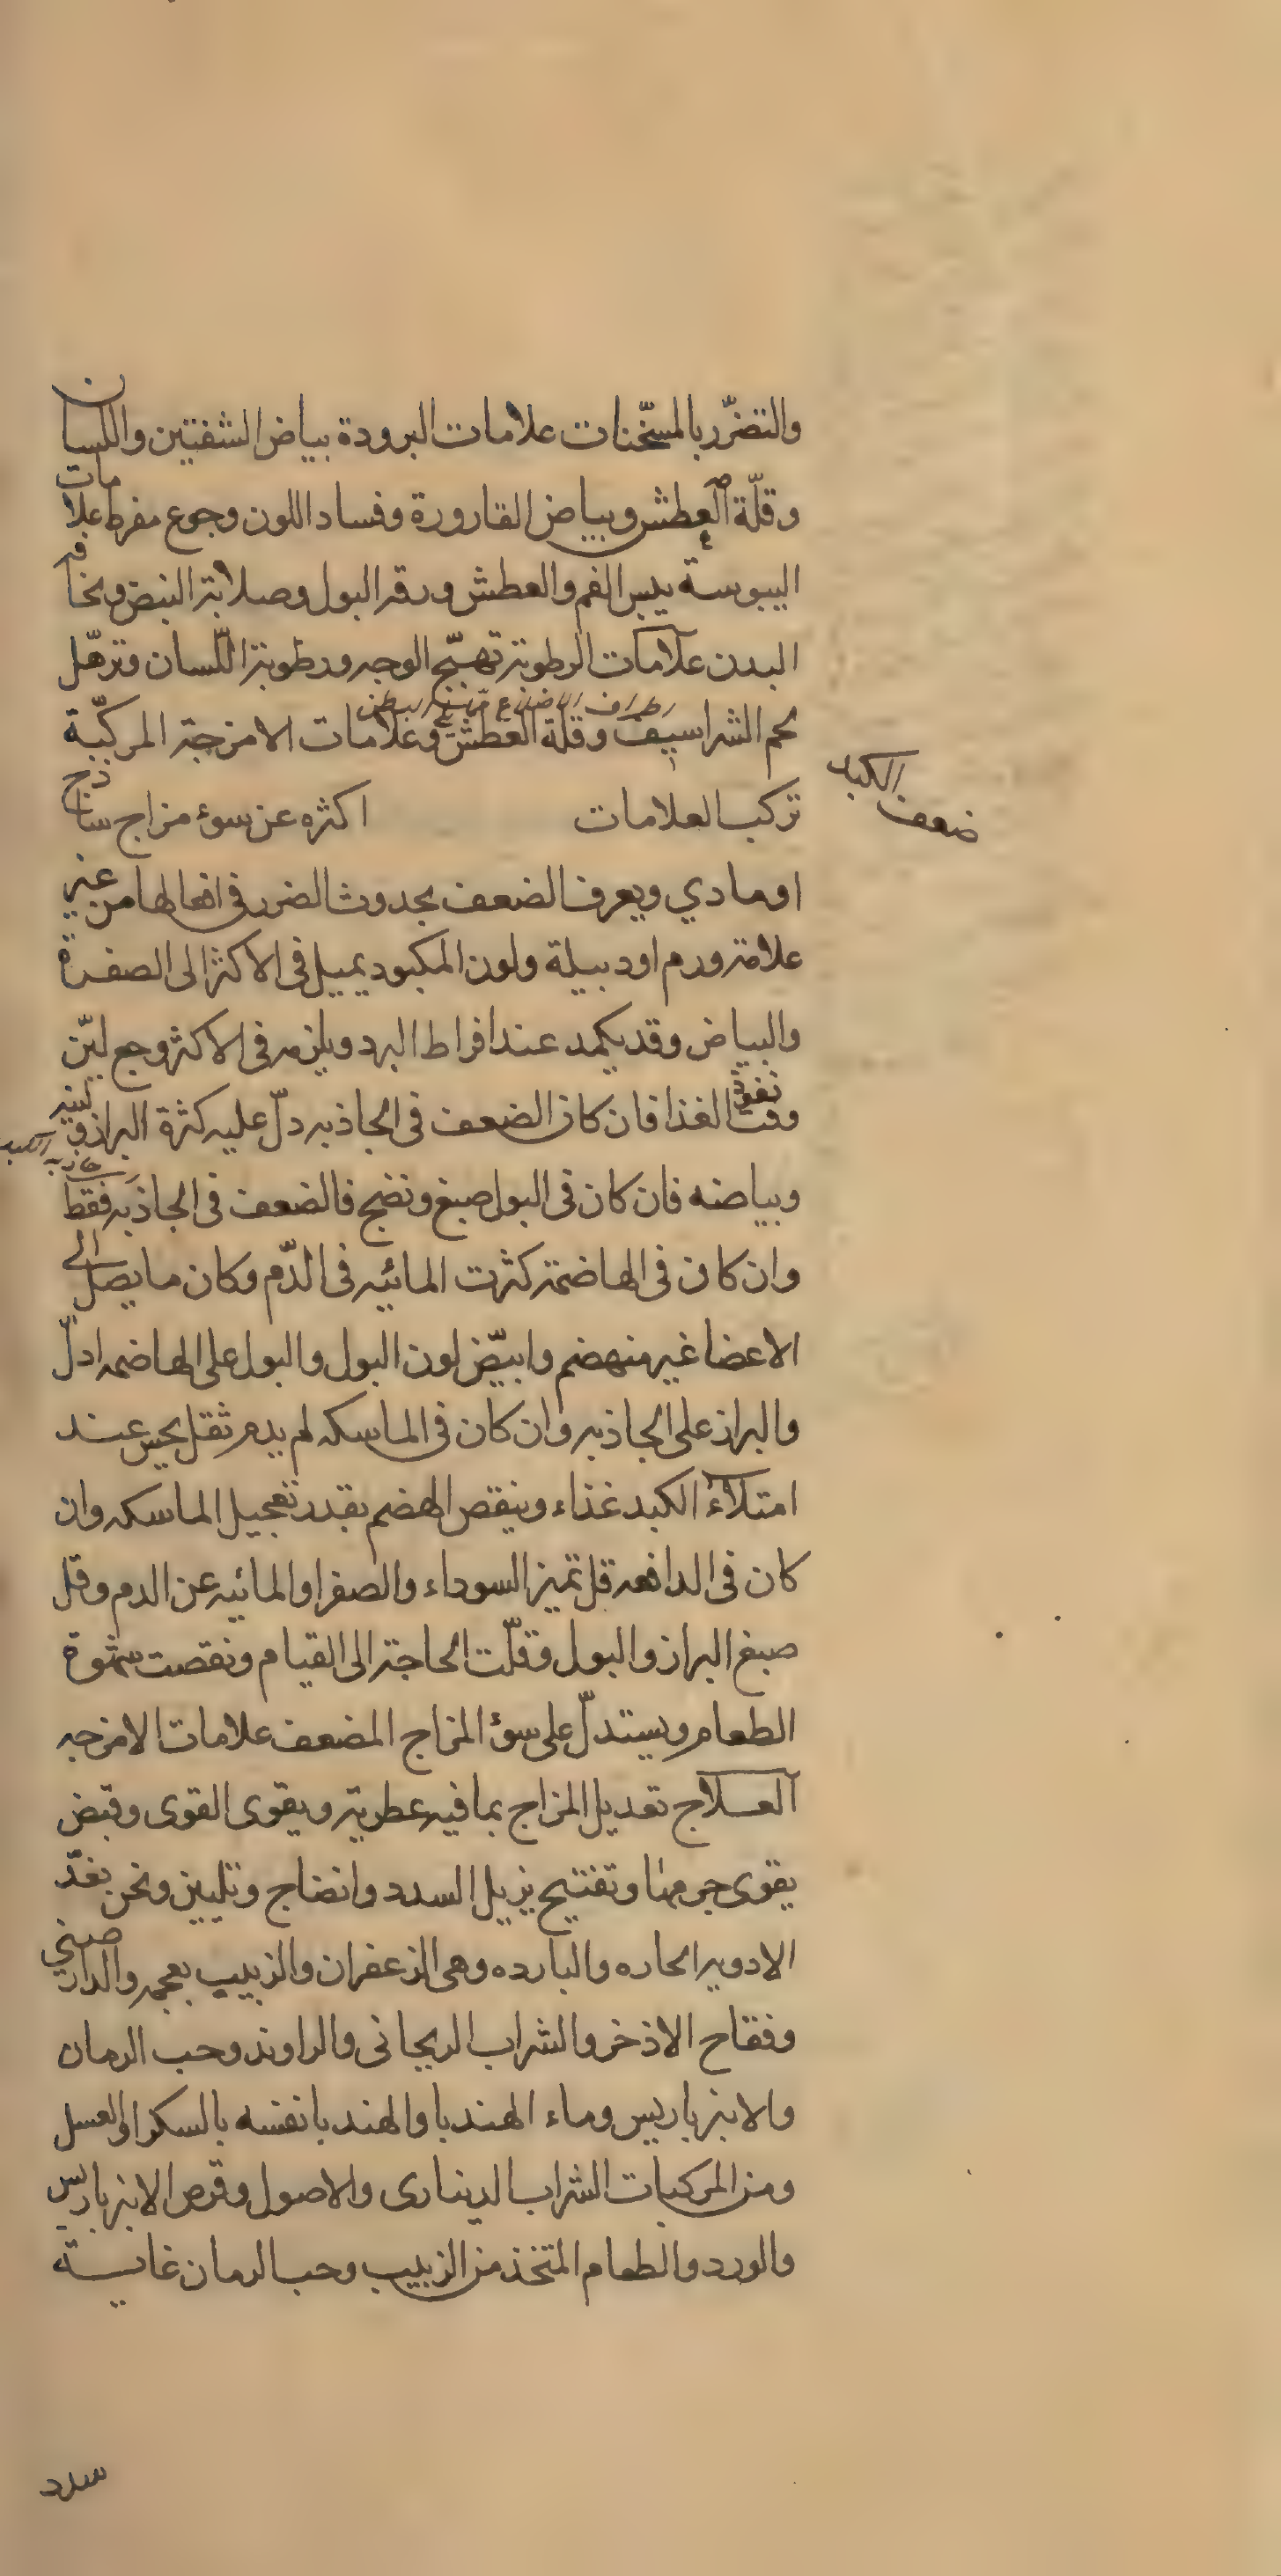 والتضرّر بالمسخّنات علامات البرودة بياض الشفتين واللسان
وقلّة العطش وبياض القارورة وفساد اللون وجوع مفرط علامات
اليبوسة يبس الفم والعطش ورقه البول وصلابة النبض ونحافه
البدن علامات الرطوبة تهيّج الوجه ورطوبة اللّسان وترهّل
لحم الشراسيف وقلة العطش وعلامات الامزجة المركبّة
ضعف الكبد
تركب العلامات اكثره عن سوء مزاج ساذج
او مادي ويعرف الضعف بحدوث الضرر في افعالها من غير
علامة ورم او دبيلة ولون المكبود يميل في الاكثر الى الصفرة
والبياض وقد يكمد عند افراط البرد ويلزمه في الاكثر وجع ليّن
وقت نفوذ الغذا فان كان الضعف في الجاذبه دلّ عليه كثرة البراز ولينه
وبياضه فان كان في البول صبغ ونضج فالضعف في الجاذبه فقط
وان كان في الهاضمة كثرت المائيه في الدّم وكان ما يصل الى
الاعضا غير منهضم وابيّض لون البول والبول على الهاضمه ادلّ
والبراز على الجاذبه وان كان في الماسكه لم يدم ثقل يحس عند
امتلاء الكبد غذاء وينقص الهضم بقدر تعجيل الماسكه وان
كان في الدافعه قل تميز السوداء والصفرا والمائيه عن الدم وقل
صبغ البراز والبول وقلّت الحاجة الى القيام ونقصت شهوة
الطعام ويستدلّ على سوء المزاج المضعف علامات الامزجه
العلاج تعديل المزاج بما فيه عطرية ويقوى القوى وقبض
يقوى جرمها وتفتيح يزيل السدد وانضاج وتليين ونحن نعدّ
الادويه الحاره والبارده وهي الزعفران والزبيب بعجمه والدارصيني
وفقاح الاذخر والشراب الريحاني والراوند وحب الرمان
والانبرباريس وماء الهندبا والهندبا نفسه بالسكر او العسل
ومن المركبات الشراب الديناري والاصول وقرص الانبرباريس
والورد والطعام المتخذ من الزبيب وحب الرمان غاية
سدد